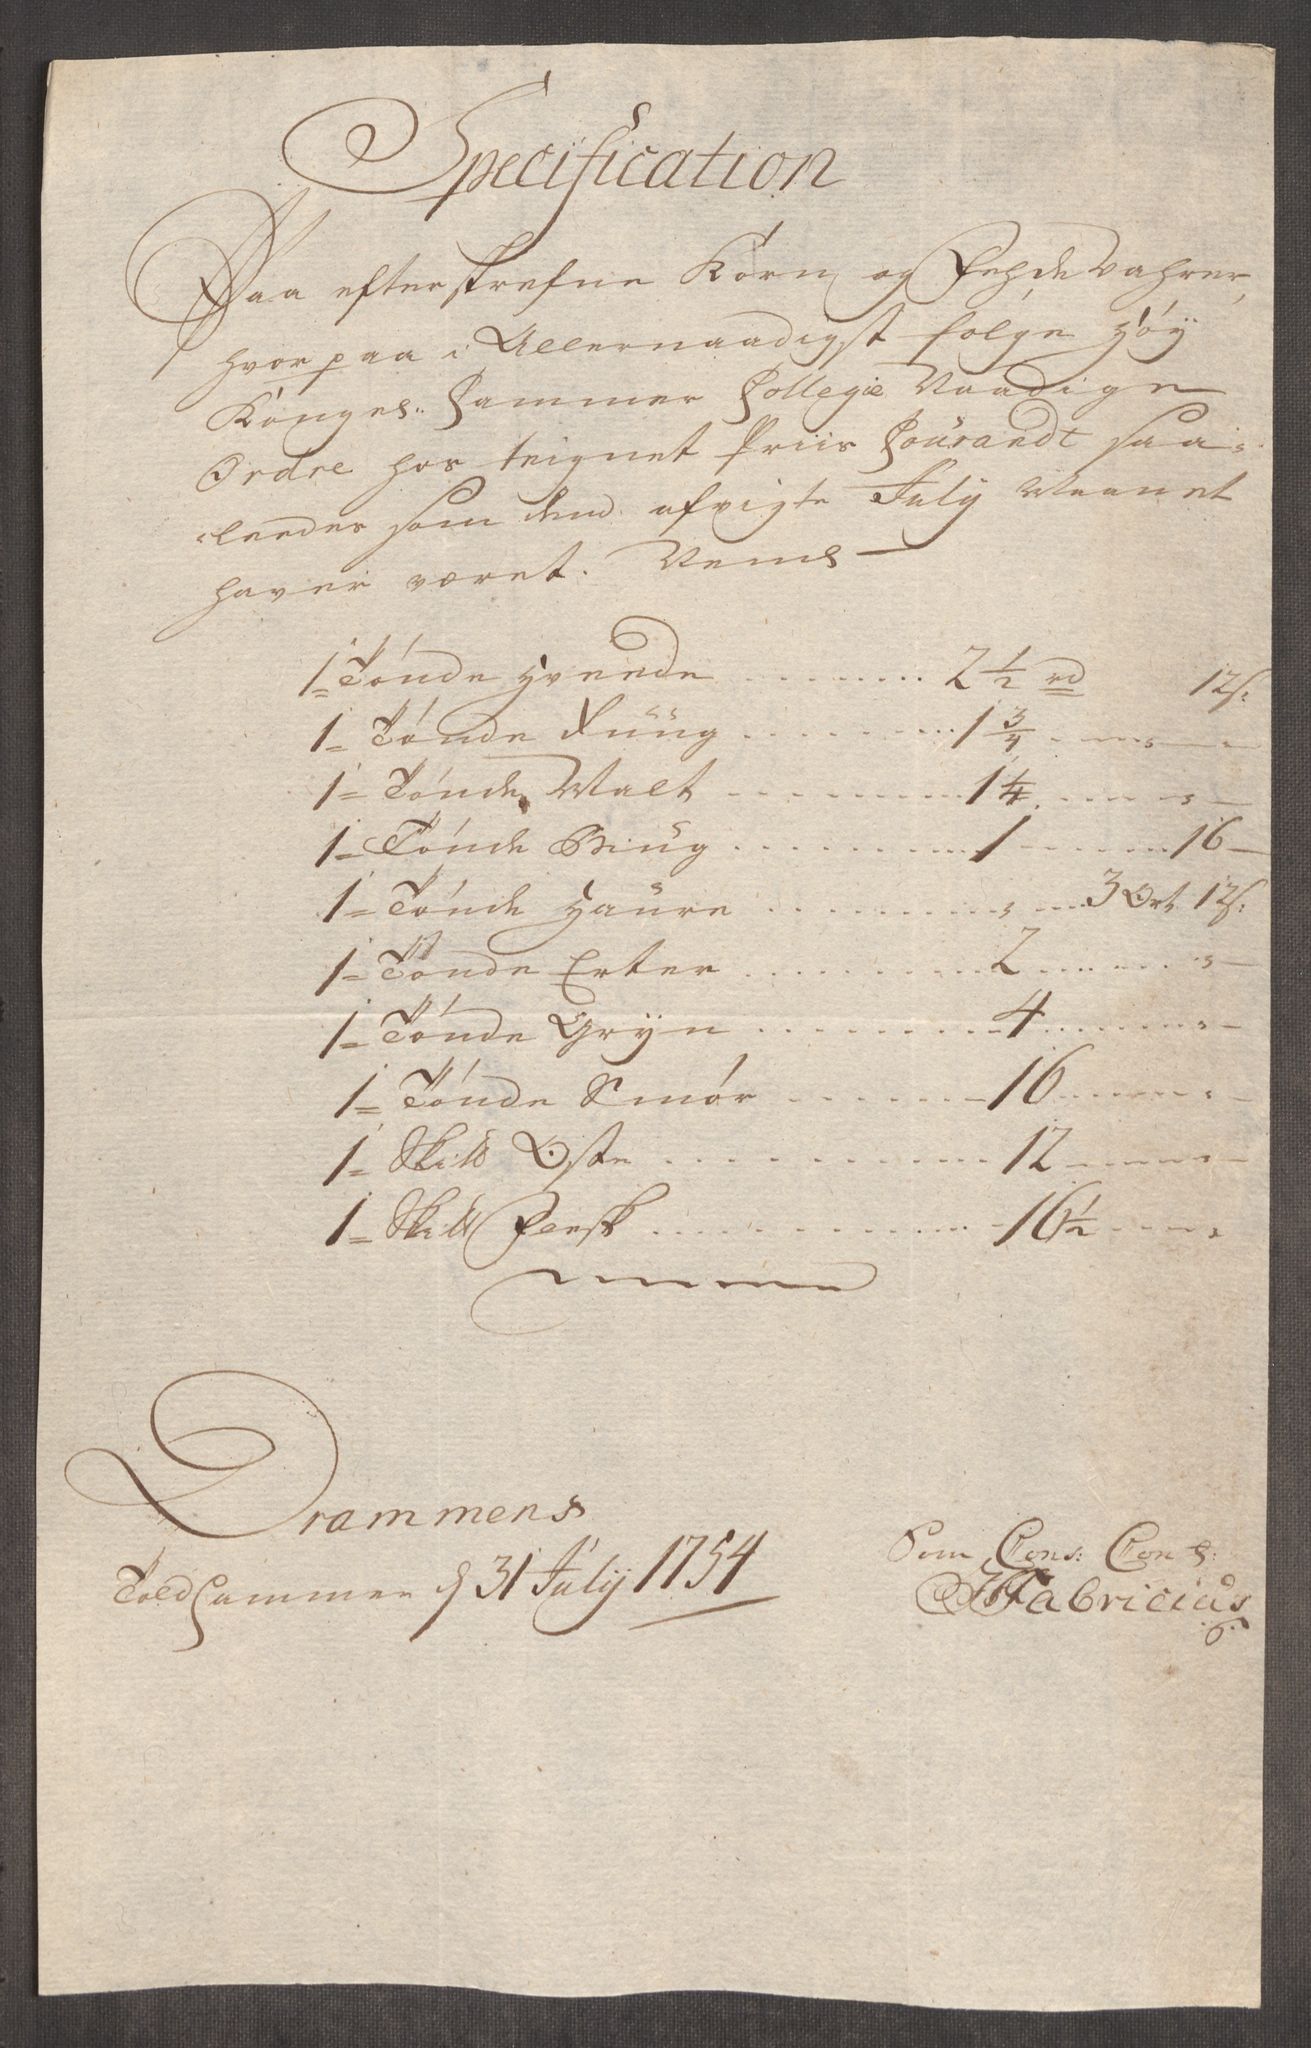 Specification
Paa efterskrefne Korn og Fehde Vahrer,
hvor paa i Allernaadigst følge Høy
Konges: Cammer Collegie Naadige
Ordre hos teignet Priis Courandt saa-
leedes som dend afvigte July Maanet
haver været. Neml
1= Tønde Hveede ........ 2 1/2 rd 12s:
1= Tønde Rüüg ........ 1 3/4 ....... „ —
1= Tønde Malt ........ 1 1/4 ....... „ —
1= Tønde Biüg ........ 1 ....... 16 —
1= Tønde Haure ........ „ .... 3 Ort 12s:
1= Tønde Erter ........ 2 ....... „ —
1= Tønde Gryn ........ 4 ....... „ —
1= Tønde Smør ........ 16 ....... „ —
1= Skilb Oste ........ 12 ....... „ —
1= Skilb Flesk ........ 16 1/2 ....... „
Drammens
Told Cammer d 31 July 1754
Som Cons: Cont:
Fabricius